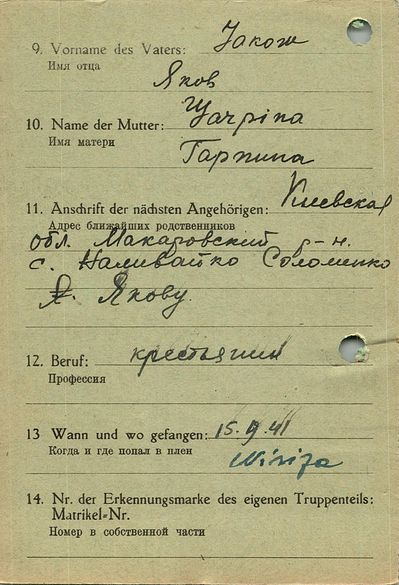 9. Vorname des Vaters: Jакож
Имя отца
Яков
10. Name der Mutter:
Имя матери
Гарпина
11. Anschrift der nächsten Angehörigen: Киевская
Адрес ближайших родственников
обл. Макаровский р-н.
с. Наливайко Соломенко
Якову.
12. Beruf: крестьянин
Профессия
13 Wann und wo gefangen: 15.9.41
Когда и где попал в плен
14. Nr. der Erkennungsmarke des eigenen Truppenteils:
Matrikel-Nr.
Номер в собственной части